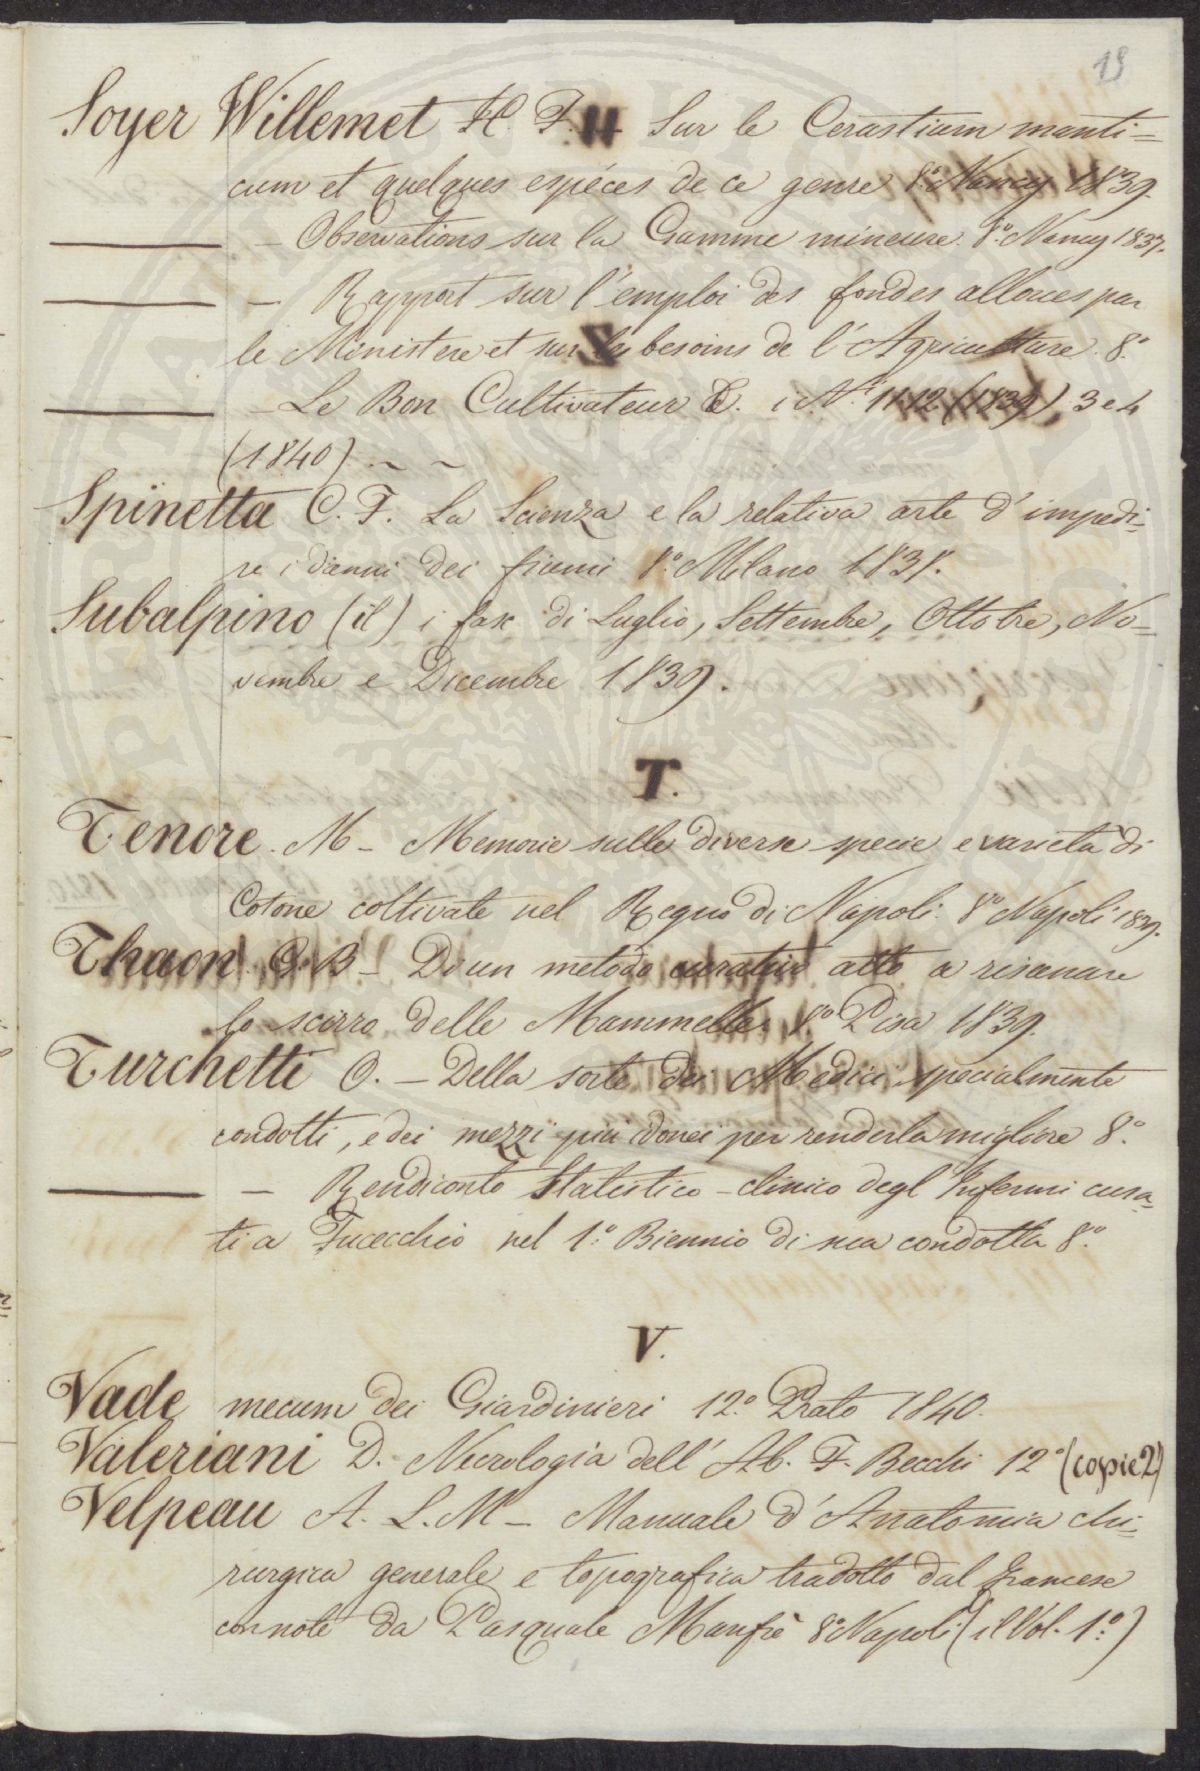 19
Soyer Willemet H. F. — Sur le Cerastium manti=
cum et quelques espéces de ce genre 8.º Nancy 1839.
— Observations sur la Gamme mineure. 8.º Nancy 1837.
— Rapport sur l'emploi des fondes alloues par
le Ministere et sur les besoins de l'Agriculture. 8.º
— Le Bon Cultivateur &. i N.i 11.12 (1839), 3 e 4
(1840) ~ ~
Spinetta C. F. La Scienza e la relativa arte d'impedi=
re i danni dei fiumi 8.º Milano 1838.
Subalpino (il) i fasc. di Luglio, Settembre, Ottobre, No=
vembre e Dicembre 1839.
T.
Tenore. M — Memorie sulle diverse specie e varietà di
Cotone coltivate nel Regno di Napoli. 8.º Napoli 1839.
Thaon. G. B — Di un metodo curativo atto a risanare
lo scirro delle Mammelle 8.º Pisa 1839.
Turchetti O. — Della sorte dei Medici specialmente
condotti, e dei mezzi più idonei per renderla migliore 8.º
— Rendiconto Statistico-clinico degl'Infermi cura=
ti a Fucecchio nel 1.º Biennio di sua condotta 8.º
V.
Vade mecum dei Giardinieri 12.º Prato 1840.
Valeriani D. Necrologia dell'Ab. F. Becchi 12.º (copie 2)
Velpeau A. L. M — Manuale d'Anatomia chi=
rurgica generale e topografica tradotto dal francese
con note da Pasquale Manfrè 8.º Napoli (il Vol. 1.º)